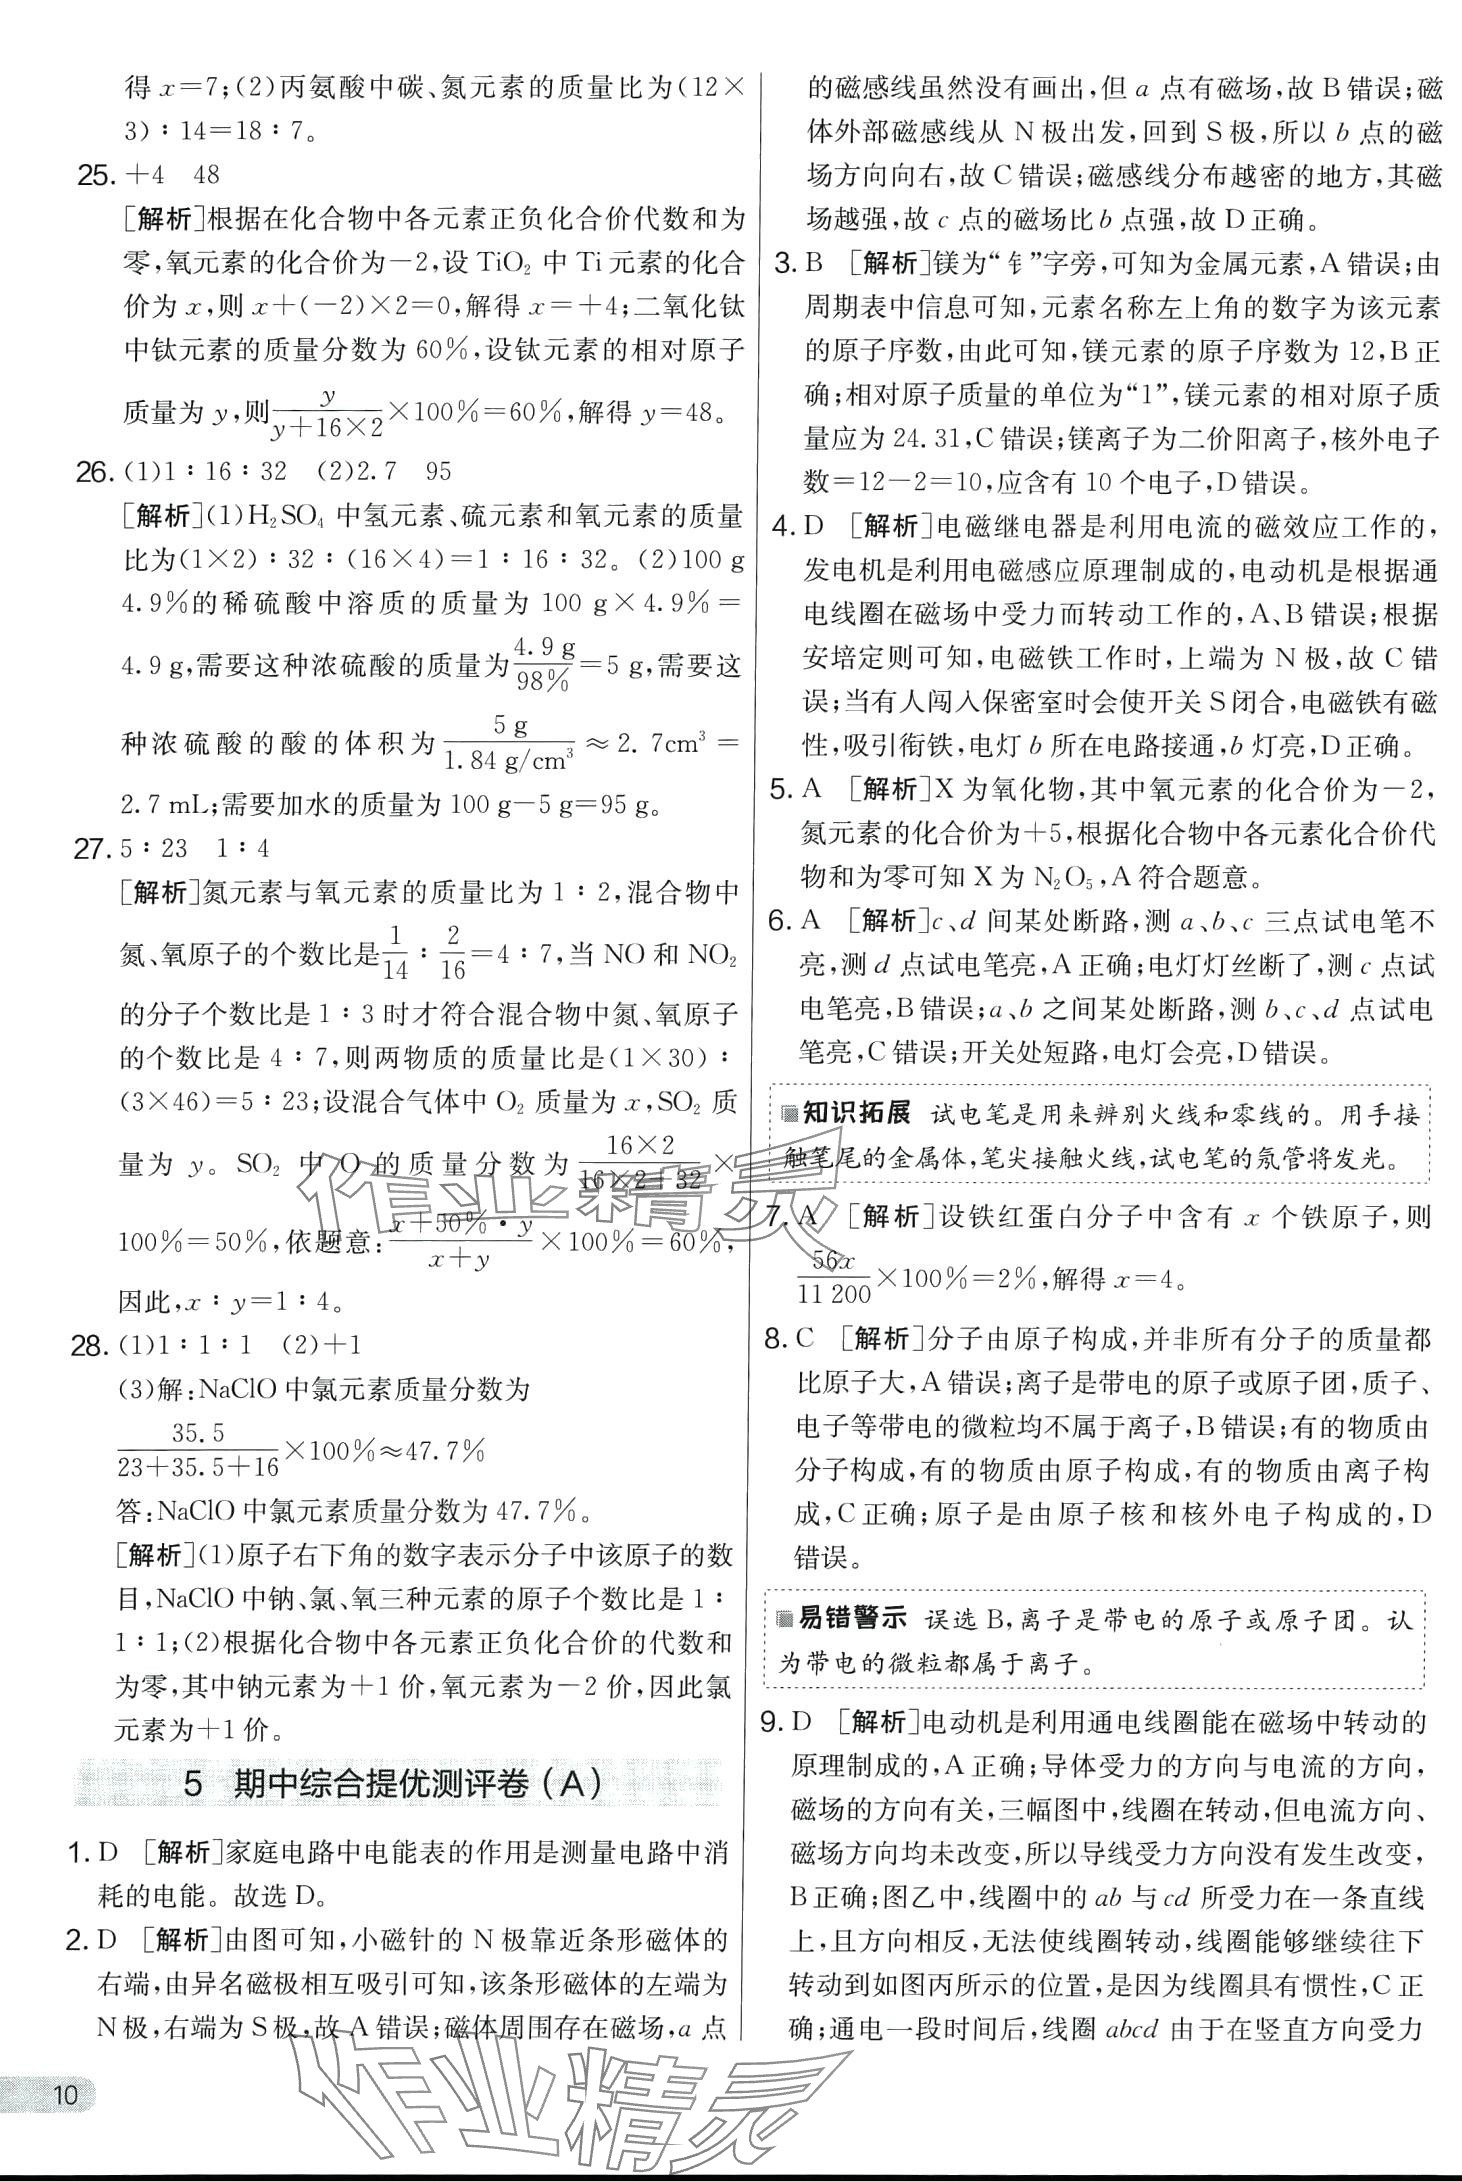 得 x=7;(2)丙氨酸中碳、氮元素的质量比为(12×
3)∶14=18∶7。
25. +4　48
[解析]根据在化合物中各元素正负化合价代数和为
零,氧元素的化合价为-2,设 TiO₂ 中 Ti 元素的化合
价为 x,则 x+(-2)×2=0,解得 x=+4;二氧化钛
中钛元素的质量分数为 60%,设钛元素的相对原子
质量为 y,则 y/(y+16×2)×100%=60%,解得 y=48。
26. (1)1∶16∶32　(2)2.7　95
[解析](1)H₂SO₄ 中氢元素、硫元素和氧元素的质量
比为(1×2)∶32∶(16×4)=1∶16∶32。(2)100 g
4.9%的稀硫酸中溶质的质量为 100 g×4.9%=
4.9 g,需要这种浓硫酸的质量为 4.9 g/98%=5 g,需要这
种浓硫酸的酸的体积为 5 g/1.84 g/cm³≈2.7cm³=
2.7 mL;需要加水的质量为 100 g-5 g=95 g。
27. 5∶23　1∶4
[解析]氮元素与氧元素的质量比为 1∶2,混合物中
氮、氧原子的个数比是 1/14∶2/16=4∶7,当 NO 和 NO₂
的分子个数比是 1∶3 时才符合混合物中氮、氧原子
的个数比是 4∶7,则两物质的质量比是(1×30)∶
(3×46)=5∶23;设混合气体中 O₂ 质量为 x,SO₂ 质
量为 y。SO₂ 中 O 的质量分数为 16×2/(16×2+32)×
100%=50%,依题意:(x+50%·y)/(x+y)×100%=60%,
因此,x∶y=1∶4。
28. (1)1∶1∶1　(2)+1
(3)解:NaClO 中氯元素质量分数为
35.5/(23+35.5+16)×100%≈47.7%
答:NaClO 中氯元素质量分数为 47.7%。
[解析](1)原子右下角的数字表示分子中该原子的数
目,NaClO 中钠、氯、氧三种元素的原子个数比是 1∶
1∶1;(2)根据化合物中各元素正负化合价的代数和
为零,其中钠元素为+1 价,氧元素为-2 价,因此氯
元素为+1 价。
5　期中综合提优测评卷(A)
1. D　[解析]家庭电路中电能表的作用是测量电路中消
耗的电能。故选 D。
2. D　[解析]由图可知,小磁针的 N 极靠近条形磁体的
右端,由异名磁极相互吸引可知,该条形磁体的左端为
N 极,右端为 S 极,故 A 错误;磁体周围存在磁场,a 点
10
的磁感线虽然没有画出,但 a 点有磁场,故 B 错误;磁
体外部磁感线从 N 极出发,回到 S 极,所以 b 点的磁
场方向向右,故 C 错误;磁感线分布越密的地方,其磁
场越强,故 c 点的磁场比 b 点强,故 D 正确。
3. B　[解析]镁为“钅”字旁,可知为金属元素,A 错误;由
周期表中信息可知,元素名称左上角的数字为该元素
的原子序数,由此可知,镁元素的原子序数为 12,B 正
确;相对原子质量的单位为“1”,镁元素的相对原子质
量应为 24.31,C 错误;镁离子为二价阳离子,核外电子
数=12-2=10,应含有 10 个电子,D 错误。
4. D　[解析]电磁继电器是利用电流的磁效应工作的,
发电机是利用电磁感应原理制成的,电动机是根据通
电线圈在磁场中受力而转动工作的,A、B 错误;根据
安培定则可知,电磁铁工作时,上端为 N 极,故 C 错
误;当有人闯入保密室时会使开关 S 闭合,电磁铁有磁
性,吸引衔铁,电灯 b 所在电路接通,b 灯亮,D 正确。
5. A　[解析]X 为氧化物,其中氧元素的化合价为-2,
氮元素的化合价为+5,根据化合物中各元素化合价代
物和为零可知 X 为 N₂O₅,A 符合题意。
6. A　[解析]c、d 间某处断路,测 a、b、c 三点试电笔不
亮,测 d 点试电笔亮,A 正确;电灯灯丝断了,测 c 点试
电笔亮,B 错误;a、b 之间某处断路,测 b、c、d 点试电
笔亮,C 错误;开关处短路,电灯会亮,D 错误。
知识拓展　试电笔是用来辨别火线和零线的。用手接
触笔尾的金属体,笔尖接触火线,试电笔的氖管将发光。
7. A　[解析]设铁红蛋白分子中含有 x 个铁原子,则
56x/11 200×100%=2%,解得 x=4。
8. C　[解析]分子由原子构成,并非所有分子的质量都
比原子大,A 错误;离子是带电的原子或原子团,质子、
电子等带电的微粒均不属于离子,B 错误;有的物质由
分子构成,有的物质由原子构成,有的物质由离子构
成,C 正确;原子是由原子核和核外电子构成的,D
错误。
易错警示　误选 B,离子是带电的原子或原子团。认
为带电的微粒都属于离子。
9. D　[解析]电动机是利用通电线圈能在磁场中转动的
原理制成的,A 正确;导体受力的方向与电流的方向,
磁场的方向有关,三幅图中,线圈在转动,但电流方向、
磁场方向均未改变,所以导线受力方向没有发生改变,
B 正确;图乙中,线圈中的 ab 与 cd 所受力在一条直线
上,且方向相反,无法使线圈转动,线圈能够继续往下
转动到如图丙所示的位置,是因为线圈具有惯性,C 正
确;通电一段时间后,线圈 abcd 由于在竖直方向受力
作业精灵
作业精灵